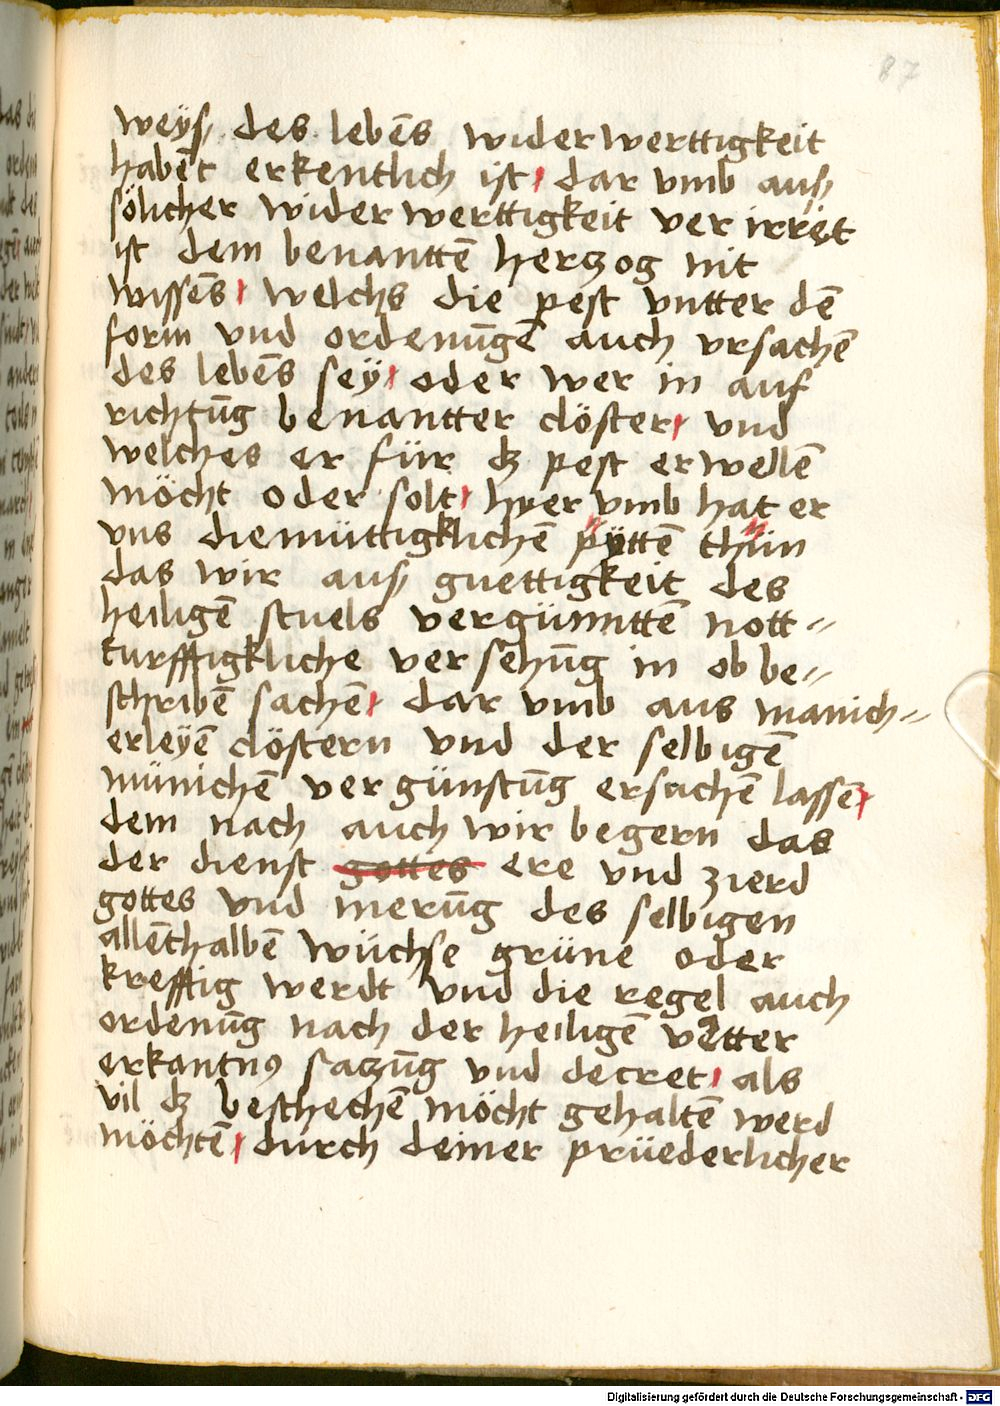 87
weÿs des lebēs widerwerttigkeit
habēt erkentlich ist dar vmb aus
sölicher widerwerttigkeit verirret
ist dem benanttē herczog nit
wissēs welchs die pest vntter dē
form vnd ordenūgē auch vrsachē
des lebēs seÿ oder wer in auf
richtūg benantter clöster vnd
welches er für dz pest erwellē
möcht oder solt hyervmb hat er
vns diemüttigklichē pÿttē thün
das wir aus guettigkeit des
heiligē stuels vergünnttē nott=
turfftigkliche versehūg in obbe=
schribē sachē darvmb aus manich=
erleÿē clöstern vnd der selbigē
münichē vergünstūg ersuchē lassē
dem nach auch wir begern das
der dienst gottes ere vnd zierd
gottes vnd merūg des selbigen
allēthalbē wüchse grüne oder
krefftig werdt vnd die regel auch
ordenūg nach der heiligē vetter
erkantnꝰ saczūg vnd decret als
vil dz beschechē möcht gehaltē werd
möchtē durch deiner prüederlicher
Digitalisierung gefördert durch die Deutsche Forschungsgemeinschaft - DFG